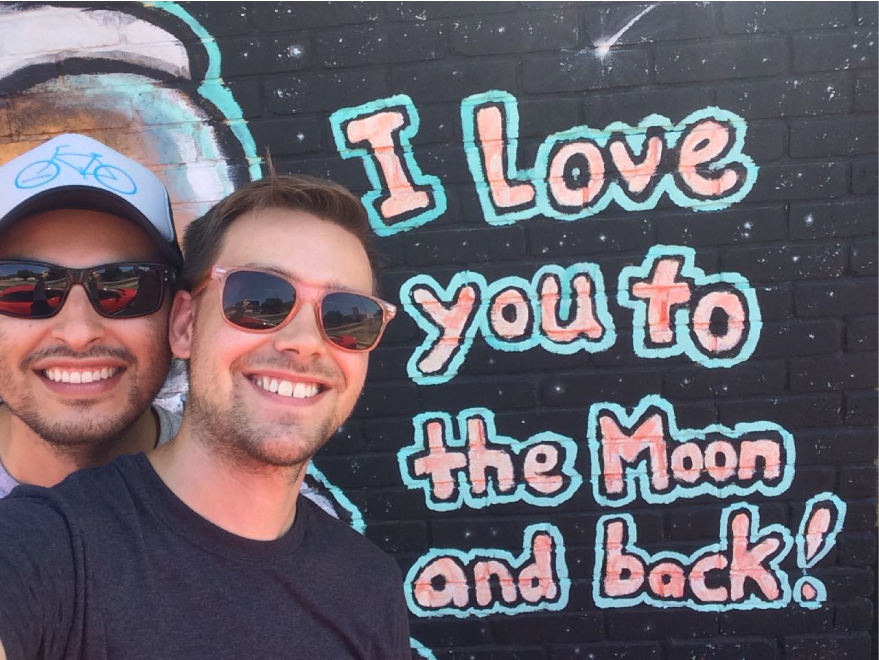 I Love
you to
the Moon
and back!